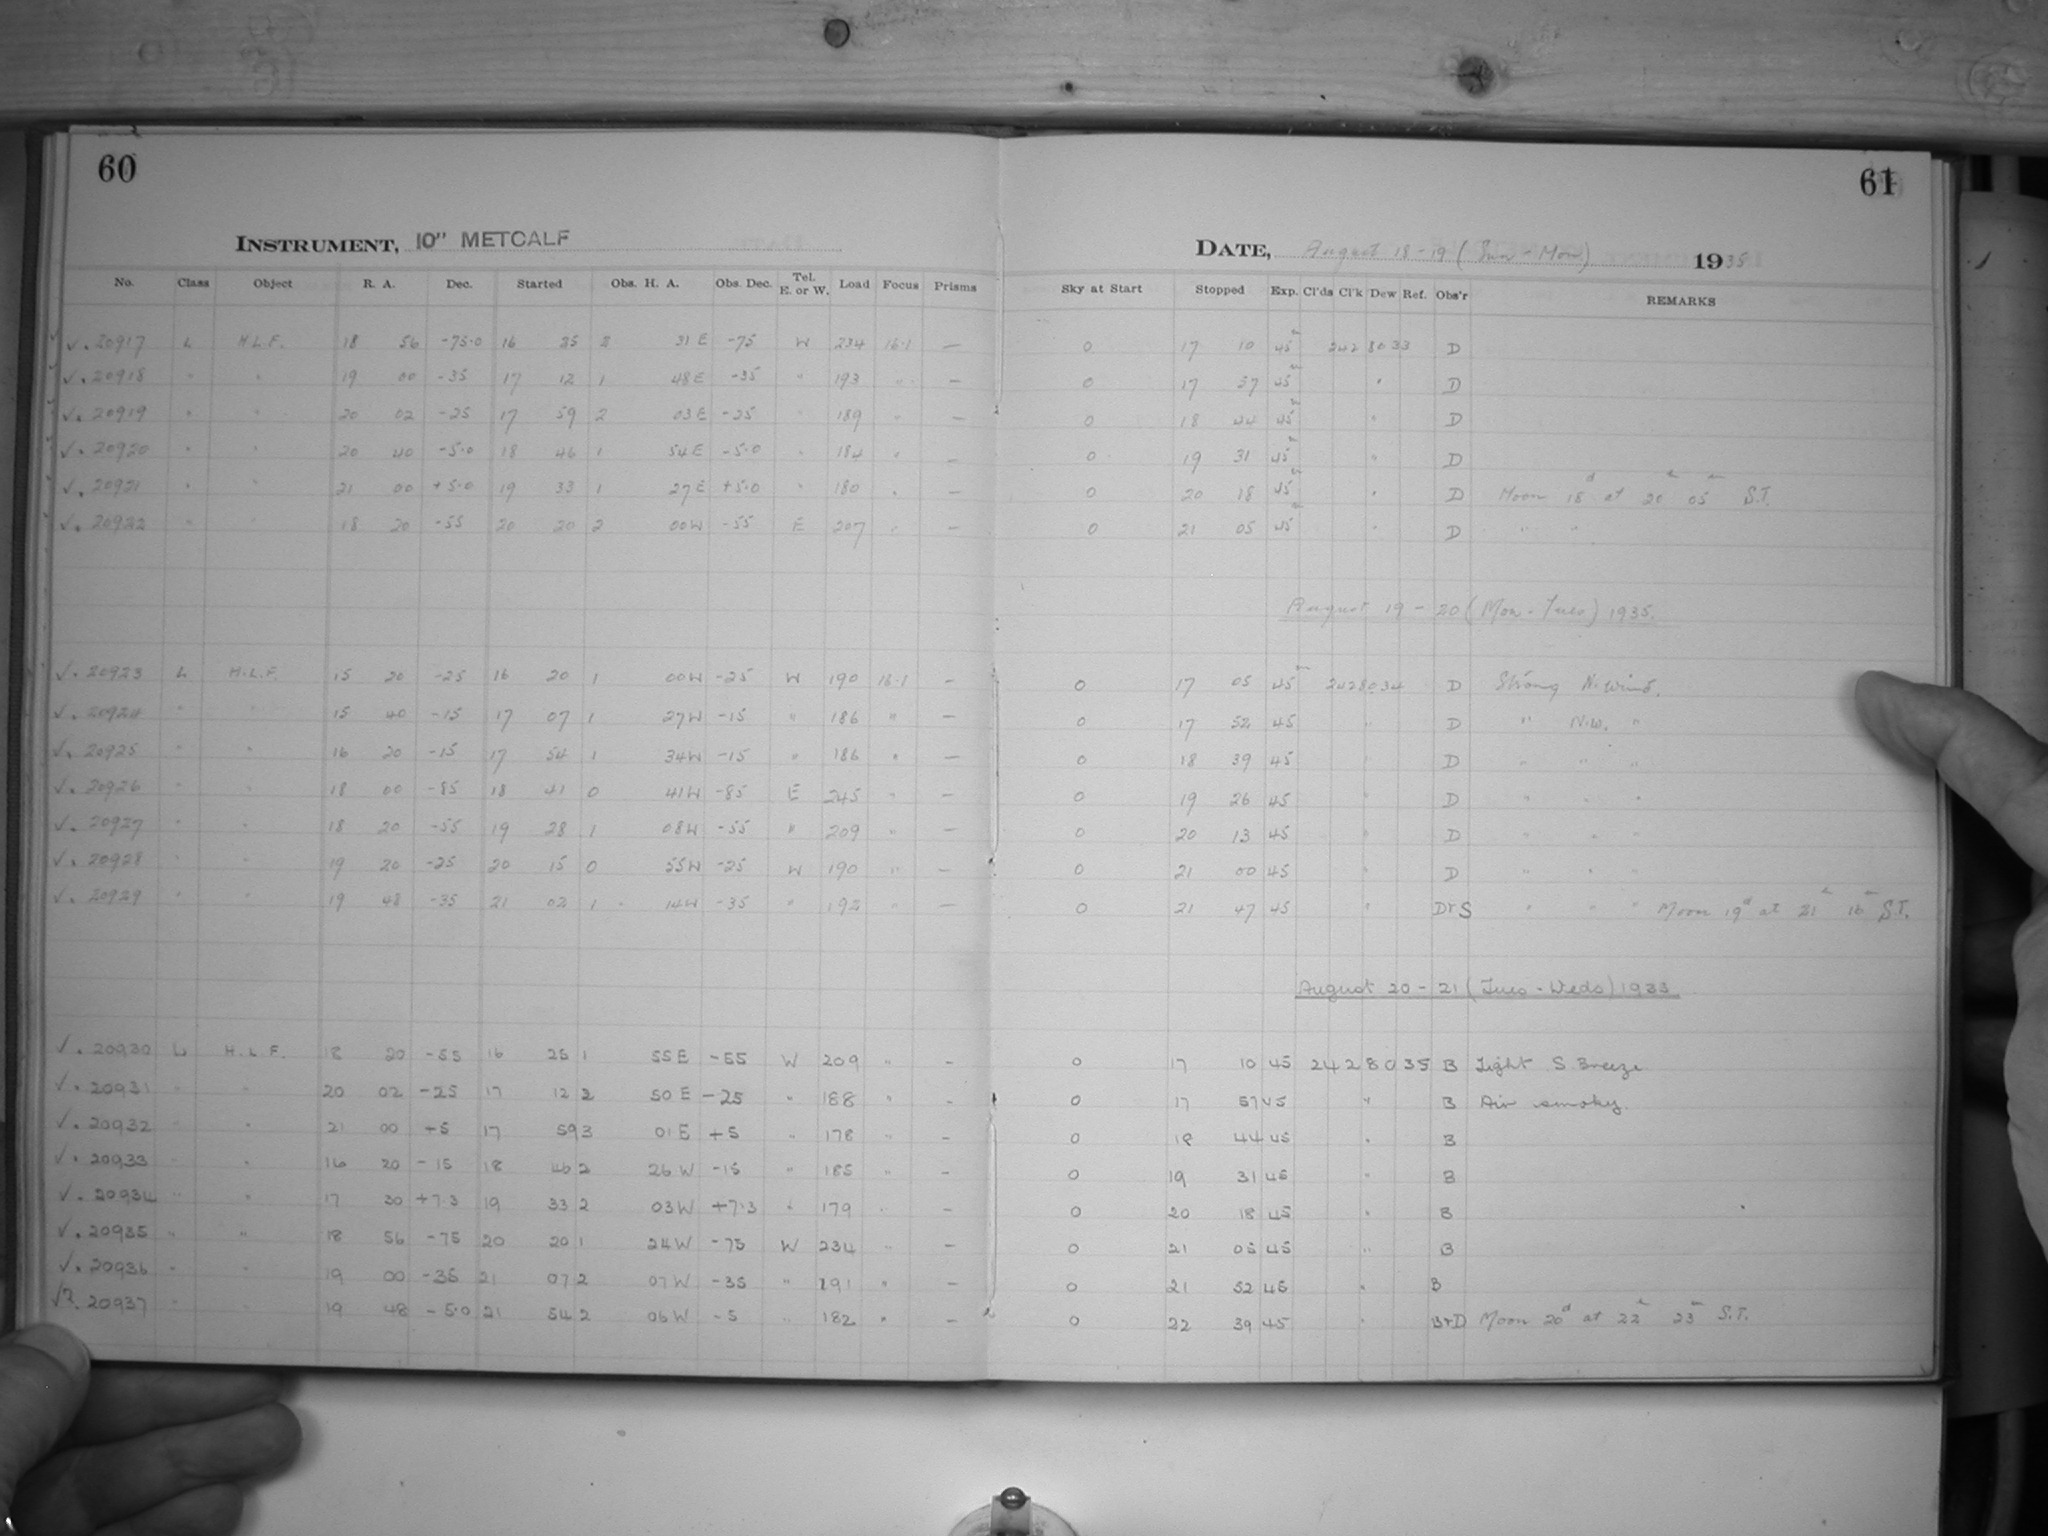 60
61
INSTRUMENT, 10" METCALF
DATE, August 18-19 (Sun - Mon) 1935
No. Class Object R. A. Dec. Started Obs. H. A. Obs. Dec. Tel. E. or W. Load Focus Prisms Sky at Start Stopped Exp. Cl'ds Cl'k Dew Ref. Obs'r REMARKS
√. 20917 L H.L.F. 18 56 -75.0 16 25 2 31 E -75 W 234 16.1 — 0 17 10 45 m 2428033 D
√. 20918 " " 19 00 -35 17 12 1 48 E -35 " 193 " — 0 17 57 45 m " D
√. 20919 " " 20 02 -25 17 59 2 03 E -25 " 189 " — 0 18 44 45 m " D
√. 20920 " " 20 40 -5.0 18 46 1 54 E -5.0 " 184 " — 0 19 31 45 m " D
√. 20921 " " 21 00 +5.0 19 33 1 27 E +5.0 " 180 " — 0 20 18 45 m " D Moon 18d at 20h 05m S.T.
√. 20922 " " 18 20 -55 20 20 2 00 W -55 E 207 " — 0 21 05 45 m " D " "
August 19 - 20 (Mon - Tues) 1935.
√. 20923 L H.L.F. 15 20 -25 16 20 1 00 W -25 W 190 16.1 — 0 17 05 45 m 2428034 D Strong N. Wind.
√. 20924 " " 15 40 -15 17 07 1 27 W -15 " 186 " — 0 17 52 45 " D " N.W. "
√. 20925 " " 16 20 -15 17 54 1 34 W -15 " 186 " — 0 18 39 45 " D " " "
√. 20926 " " 18 00 -85 18 41 0 41 W -85 E 245 " — 0 19 26 45 " D " " "
√. 20927 " " 18 20 -55 19 28 1 08 W -55 " 209 " — 0 20 13 45 " D " " "
√. 20928 " " 19 20 -25 20 15 0 55 W -25 W 190 " — 0 21 00 45 " D " " "
√. 20929 " " 19 48 -35 21 02 1 14 W -35 " 192 " — 0 21 47 45 " D+S " " " Moon 19d at 21h m S.T.
August 20 - 21 (Tues - Weds) 1933
√. 20930 L H.L.F. 18 20 -55 16 25 1 55 E -55 W 209 " — 0 17 10 45 2428035 B Light S. Breeze
√. 20931 " " 20 02 -25 17 12 2 50 E -25 " 188 " — 0 17 57 45 " B Air smoky.
√. 20932 " " 21 00 +5 17 59 3 01 E +5 " 178 " — 0 18 44 45 " B
√. 20933 " " 16 20 -15 18 46 2 26 W -15 " 185 " — 0 19 31 45 " B
√. 20934 " " 17 30 +7.3 19 33 2 03 W +7.3 " 179 " — 0 20 18 45 " B
√. 20935 " " 18 56 -75 20 20 1 24 W -75 W 234 " — 0 21 05 45 " B
√. 20936 " " 19 00 -35 21 07 2 07 W -35 " 191 " — 0 21 52 45 " B
√?. 20937 " " 19 48 -5.0 21 54 2 06 W -5 " 182 " — 0 22 39 45 " B+D Moon 20d at 22h 23m S.T.